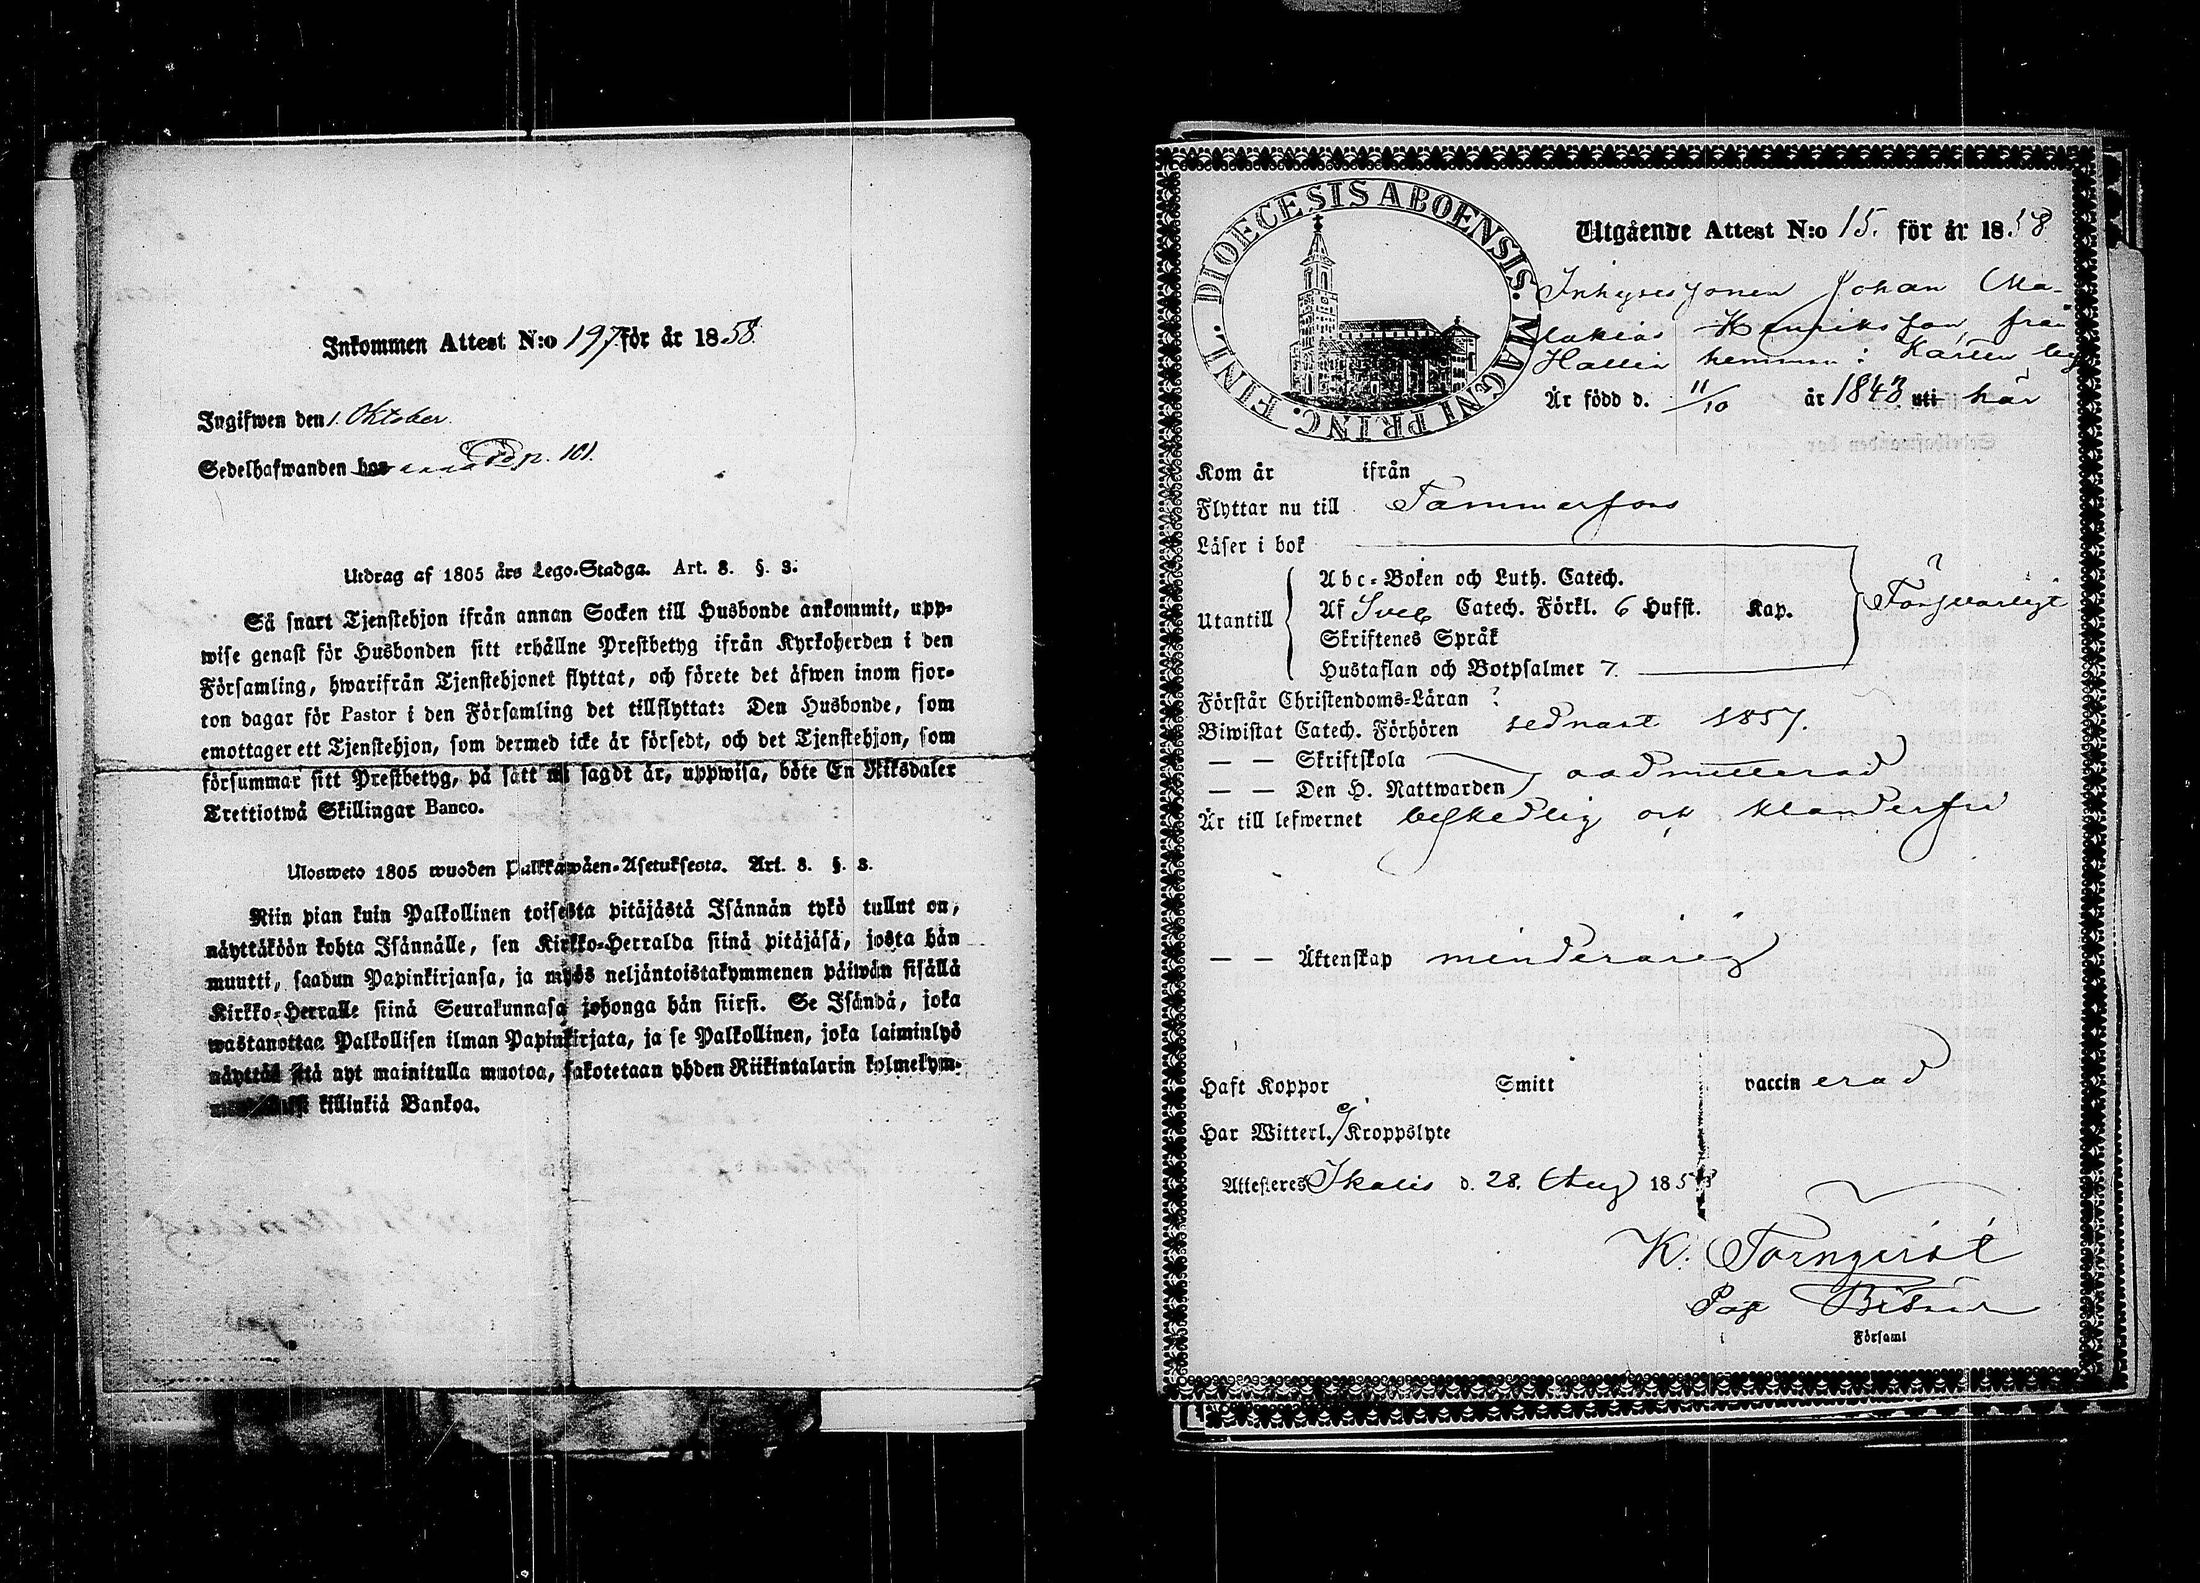 Inkommen Attest N:o 197 för år 1858.
Ingifwen den 1. Oktober.
Sedelhafwanden hos p. 101.
Utdrag af 1805 års Lego-Stadga. Art. 8. §. 3.
Så snart Tjenstehjon ifrån annan Socken till Husbonde ankommit, upp-
wise genast för Husbonden sitt erhållne Prestbetyg ifrån Kyrkoherden i den
Församling, hwarifrån Tjenstehjonet flyttat, och förete det äfwen inom fjor-
ton dagar för Pastor i den Församling det tillflyttat: Den Husbonde, som
emottager ett Tjenstehjon, som dermed icke är försedt, och det Tjenstehjon, som
försummar sitt Prestbetyg, på sätt nu sagdt är, uppwisa, böte En Riksdaler
Trettiotwå Skillingar Banco.
Ulosweto 1805 wuoden Palkkawäen-Asetuksesta. Art. 8. §. 3.
Niin pian kuin Palkollinen toisesta pitäjästä Isännän tykö tullut on,
näyttäköön kohta Isännälle, sen Kirkko-Herralda siinä pitäjäsä, josta hän
muutti, saadun Papinkirjansa, ja myös neljäntoistakymmenen päiwän sisällä
Kirkko-Herralle siinä Seurakunnasa johonga hän siirsi. Se Isändä, joka
wastanottaa Palkollisen ilman Papinkirjata, ja se Palkollinen, joka laiminlyö
näyttää sitä nyt mainitulla muotoa, sakotetaan yhden Riikintalarin kolmekym-
killinkiä Bankoa.
DIOECESIS ABOENSIS. MAGNI PRINC. FINL.
Utgående Attest N:o 15. för år 1858
Inhyses sonen Johan Ma-
lakias Henriksson från
Hallin hemman i
Är född d. 11/10 år 1843 uti här
Kom år ifrån
Flyttar nu till Tammerfors
Läser i bok
Utantill
Abc-Boken och Luth. Catech.
Af Sveb Catech. Förkl. 6 Hufst. Kap.
Skriftenes Språk
Hustaflan och Botpsalmer 7.
Försvarligt
Förstår Christendoms-Läran
Biwistat Catech. Förhören sednast 1857.
— — Skriftskola
— — Den H. Nattwarden oadmitterad
Är till lefwernet beskedlig och klanderfri
— — Äktenskap minderårig
Haft Koppor Smitt vaccinerad
Har Witterl. ej Kroppslyte
Attesteres Ikalis d. 28. Aug 1858
K. Tornqvist
Församl